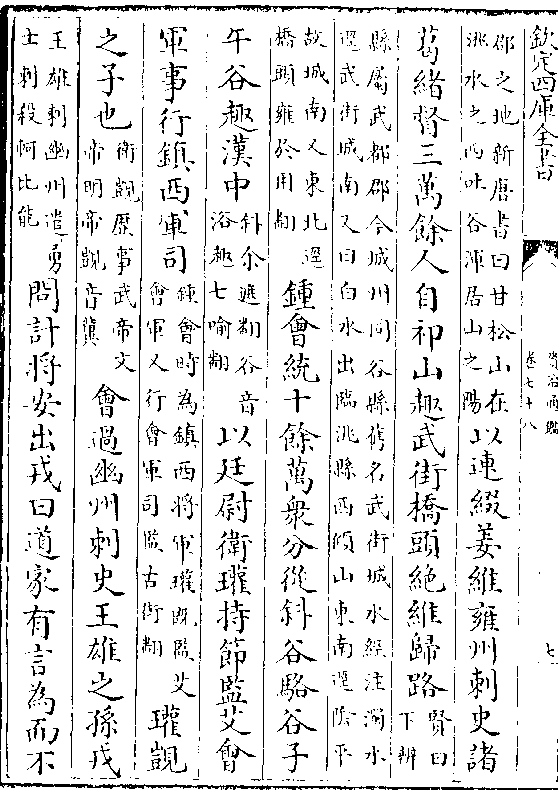 欽定四庫全書
資治通鑑
卷七十八
七
郡之地新唐書曰甘松山在
洮水之西吐谷渾居山之陽
以連綴姜維雍州刺史諸
葛緒督三萬餘人自祁山趣武街橋頭絶維歸路
賢曰
下辨
縣屬武都郡今城州同谷縣舊名武街城水經注濁水
逕武街城南又曰白水出臨洮縣西傾山東南逕隂平
故城南又東北逕
橋頭雍於用翻
鍾會統十餘萬衆分從斜谷駱谷子
午谷趣漢中
斜余遮翻谷音
浴趣七喻翻
以廷尉衛瓘持節監艾會
軍事行鎮西軍司
鍾會時為鎮西將軍瓘既監艾
會軍又行會軍司監古銜翻
瓘覬
之子也
衛覬歷事武帝文
帝明帝覬音冀
會過幽州刺史王雄之孫戎
王雄刺幽州遣勇
士刺殺軻比能
問計將安出戎曰道家有言為而不